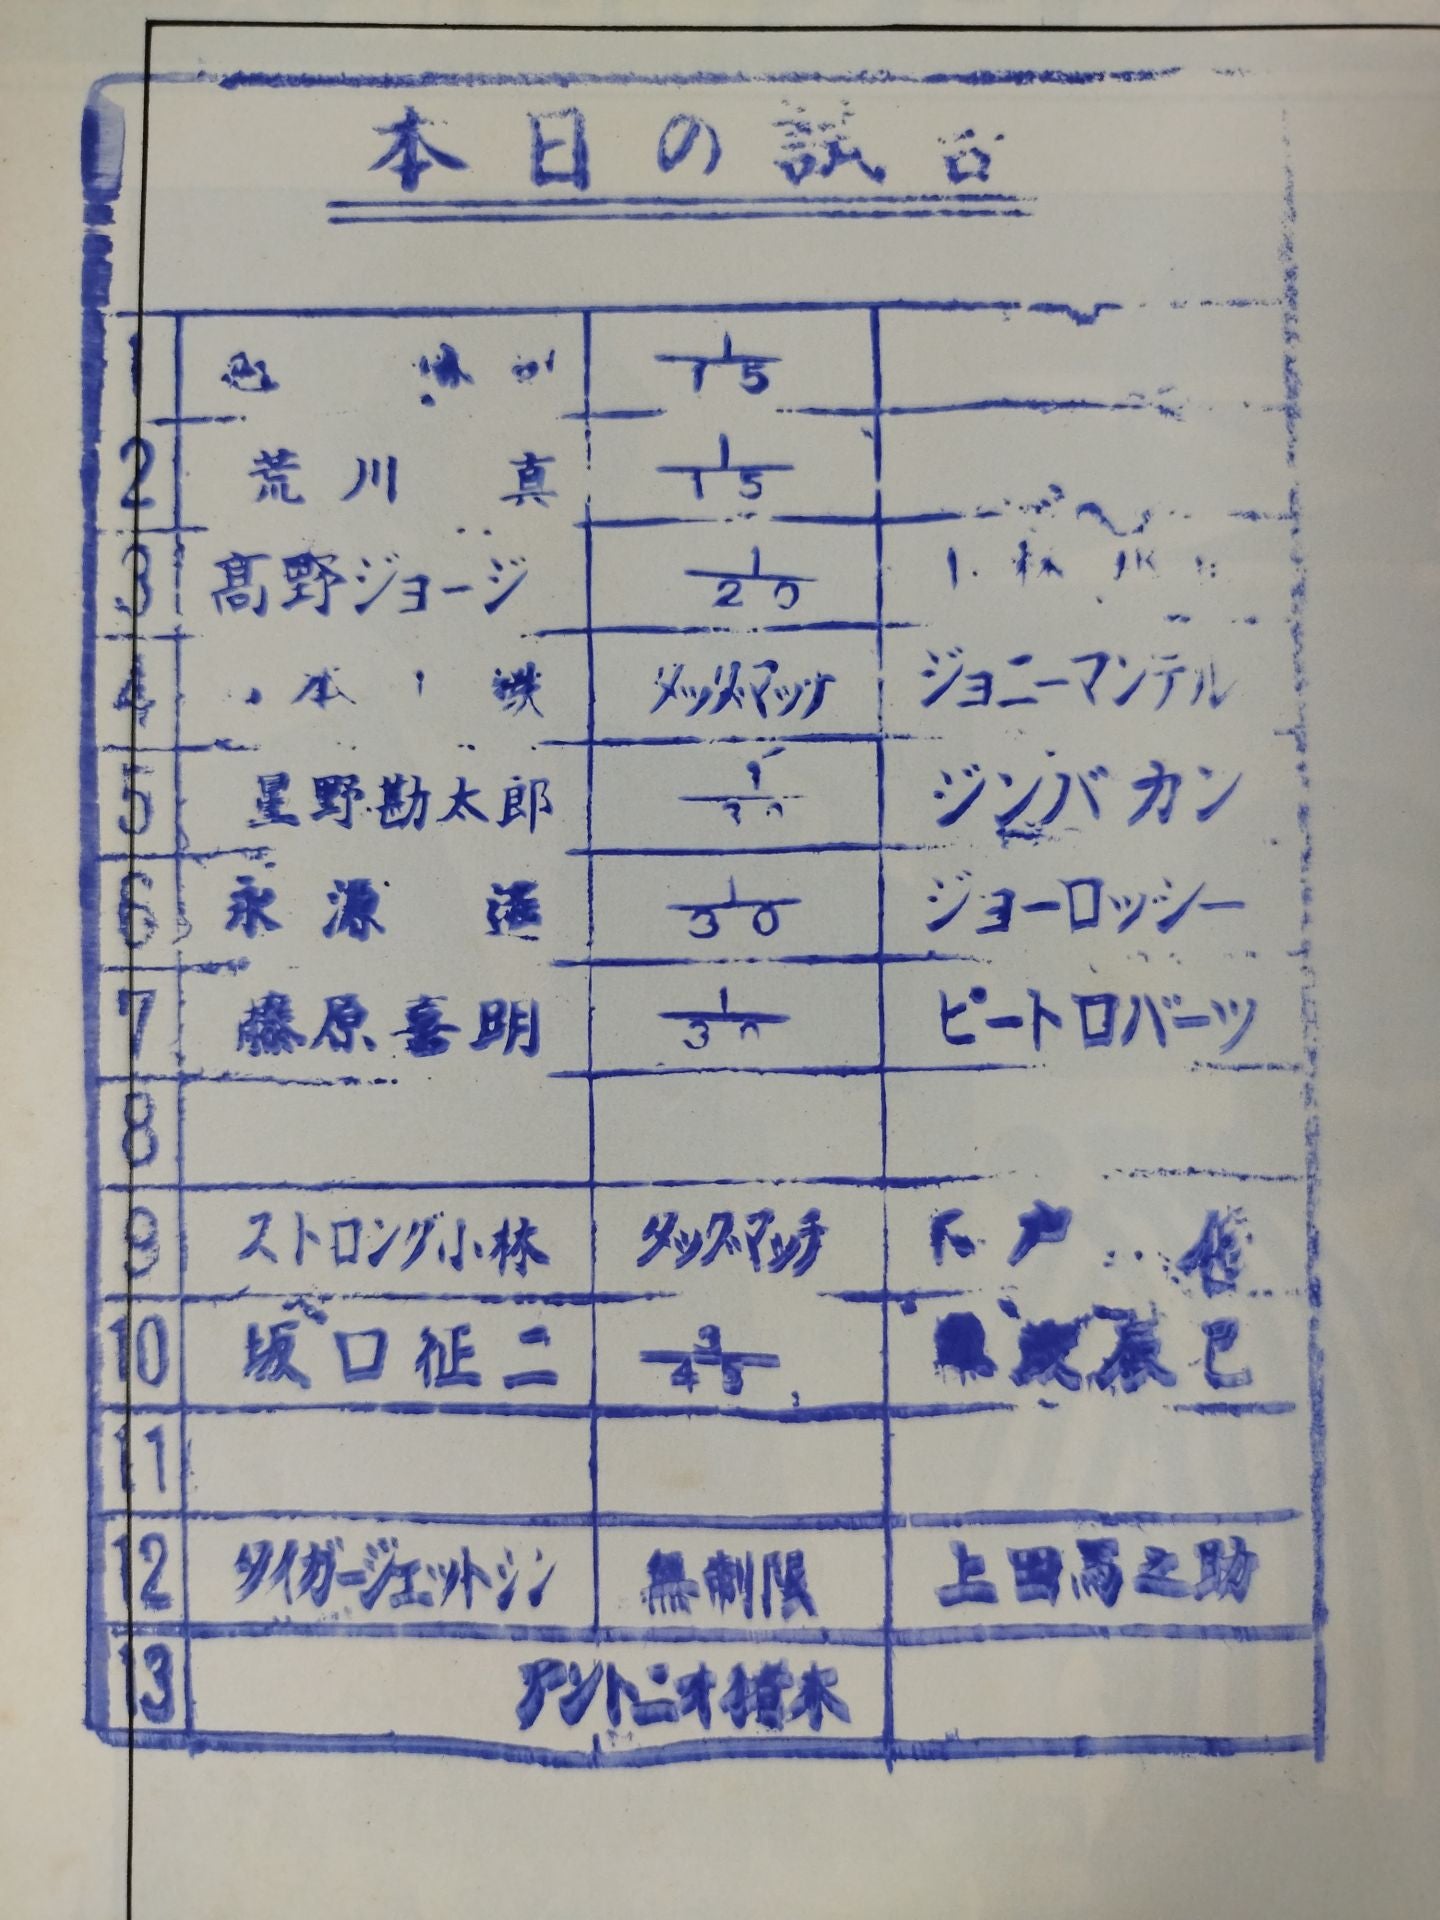 本日の試合
1 1/15
2 荒川 真 1/15
3 髙野ジョージ 1/20
4 本 鉄 タッグマッチ ジョニーマンテル
5 星野勘太郎 1/30 ジンバ カン
6 永源 遥 1/30 ジョーロッシー
7 藤原喜明 1/30 ピートロバーツ
8
9 ストロング小林 タッグマッチ 木戸 修
10 坂口征二 3/45 辰巳
11
12 タイガージェットシン 無制限 上田馬之助
13 アントニオ猪木